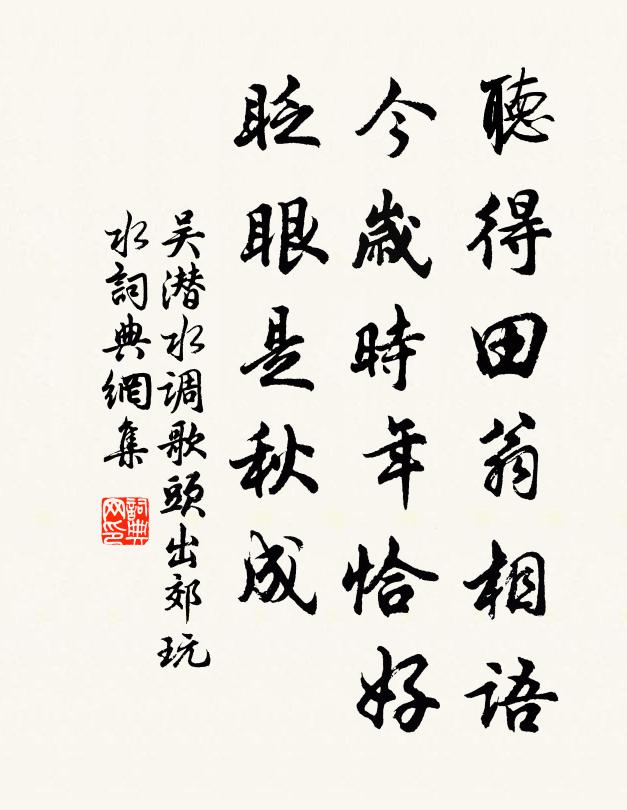 聽得田翁相語
今歲時年恰好
眨眼是秋成
吴潜水调歌頭出郊玩
水詞典網集
詞典网印